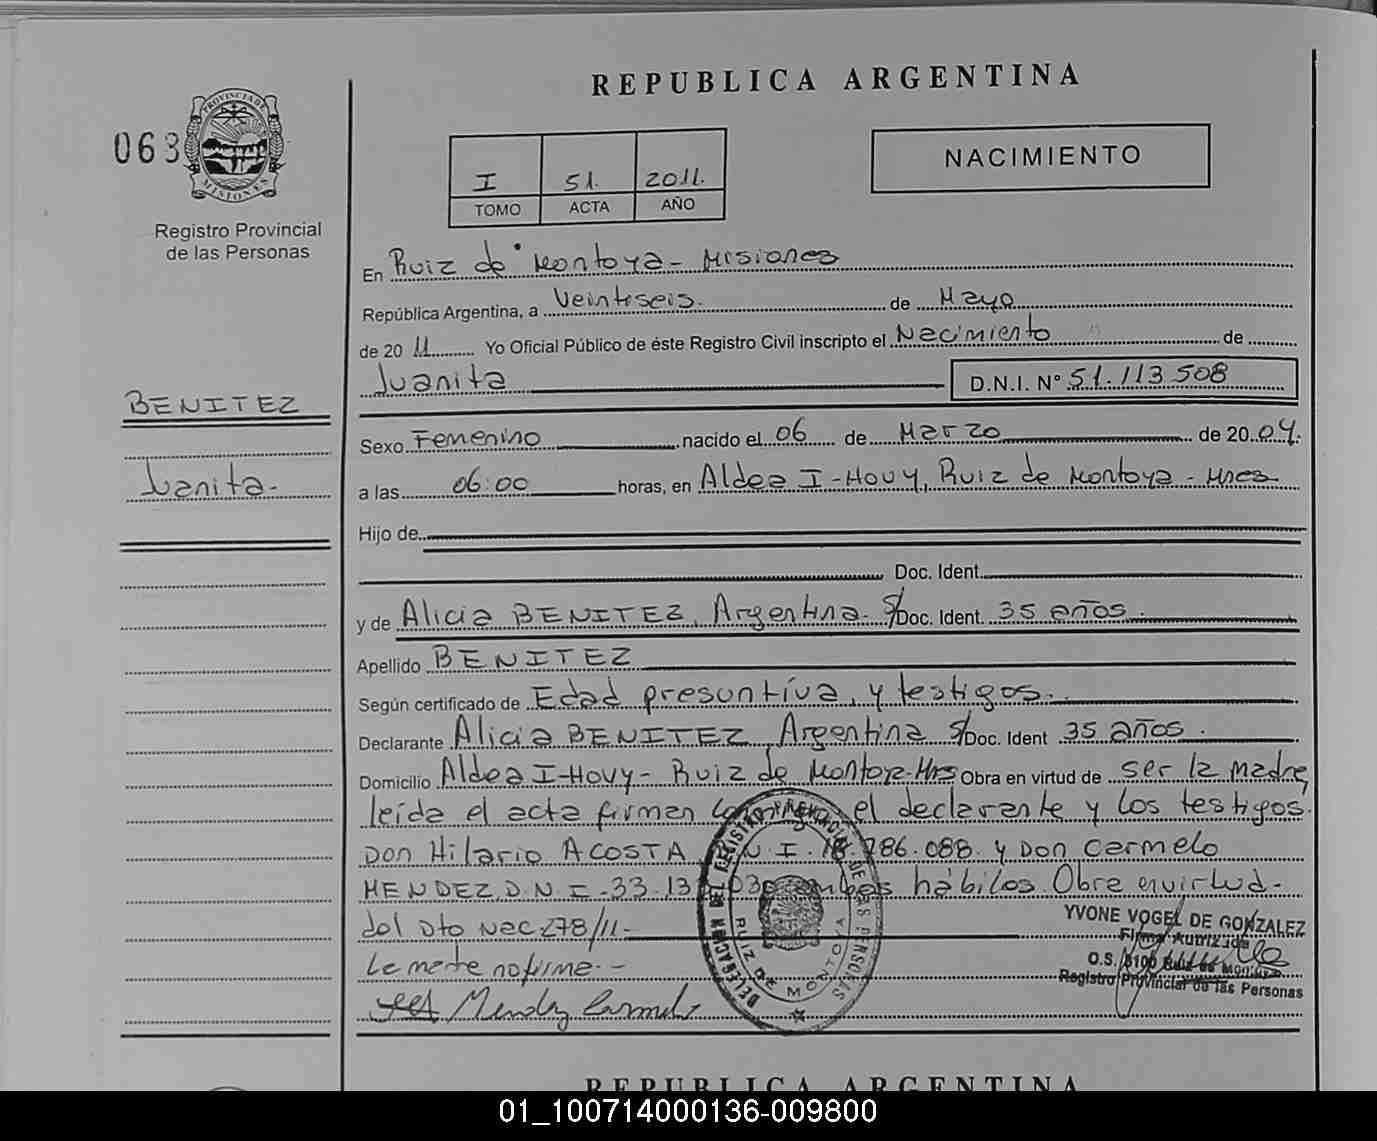 REPUBLICA ARGENTINA
063
PROVINCIA DE
MISIONES
Registro Provincial
de las Personas
I 51. 2011.
TOMO ACTA AÑO
NACIMIENTO
En Ruiz de Montoya - Misiones
República Argentina, a Veintiseis. de Mayo
de 20 11 Yo Oficial Público de éste Registro Civil inscripto el Nacimiento de
Juanita D.N.I. N° 51.113 508
BENITEZ
Sexo Femenino nacido el 06 de Marzo de 20 04.
Juanita -
a las 06:00 horas, en Aldea I-Hovy, Ruiz de Montoya - Mnes
Hijo de
Doc. Ident.
y de Alicia BENITEZ, Argentina. S/Doc. Ident. 35 años.
Apellido BENITEZ
Según certificado de Edad presuntiva, y testigos.
Declarante Alicia BENITEZ, Argentina S/Doc. Ident 35 años.
Domicilio Aldea I-Hovy - Ruiz de Montoya-Mns Obra en virtud de ser la madre,
leída el acta firman el declarante y los testigos.
Don Hilario ACOSTA 286.088 y Don Carmelo
MENDEZ, D.N.I. 33.13 030 ambos hábiles. Obra envirtud-
del Dto Nac 278/11-
La madre no firma. -
Mendez Carmelo
DELEGACION DEL REGISTRO PROVINCIAL DE LAS PERSONAS
RUIZ DE MONTOYA
YVONE VOGEL DE GONZALEZ
Firma Autorizada
O.S. 3100 Ruiz de Montoya
Registro Provincial de las Personas
REPUBLICA ARGENTINA
01_100714000136-009800